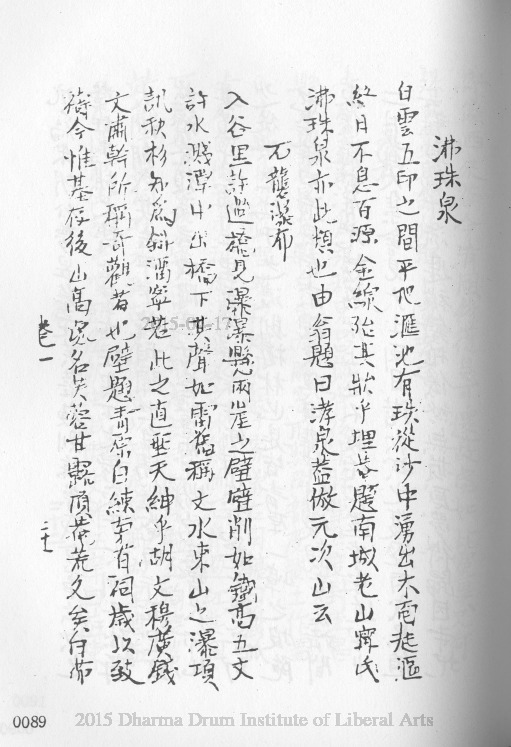 沸珠泉
白雲五印之間平地滙池有珠從沙中湧出大小
終日不息百源金線殆其狀乎埋菴題南城老山寧氏
沸珠泉亦此類也由翁題曰涍泉蓋倣元次山云
石龔瀑布
入谷里許過橋見瀑暴懸兩崖之壁壁削如鐵高五丈
許水濺潭中出橋下其聲如雷舊稱文水東山之瀑項
訊秋杉知為斜潟寧若此之直垂天紳乎胡文穆廣錢
文肅幹所稱奇觀者也壁題青原白練芽有祠歲以致
禱今惟基存後山高處名芙蓉甘露頂菴荒久矣白茆
卷一
二十
0089
2015-03-17
2015 Dharma Drum Institute of Liberal Arts